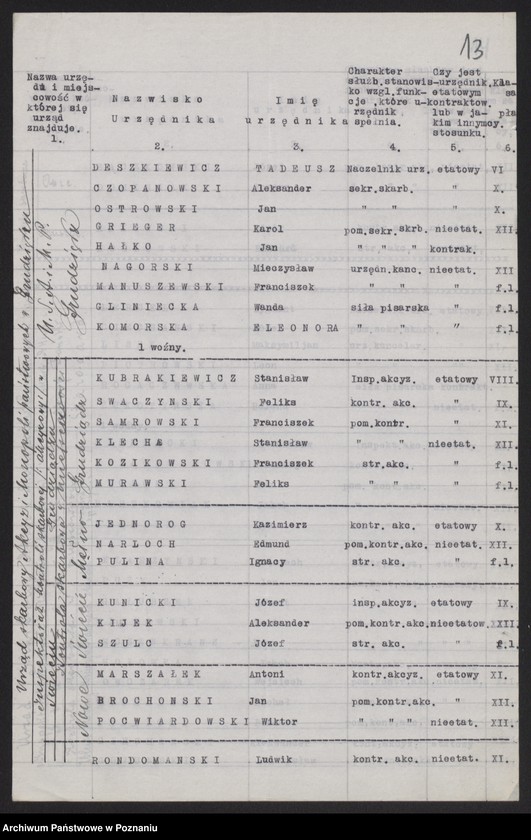 13
Nazwa urzę-
du i miejs-
cowość w
której się
urząd
znajduje.
1.
Nazwisko
Urzędnika
2.
Imię
urzędnika
3.
Charakter
służb.stanowis-
ko wzgl.funk-
cje ,które u-
rzędnik
spełnia.
4.
Czy jest
urzędnik.
etatowym
kontraktow.
lub w ja-
kim innym
stosunku.
5.
Kla-
sa
pła
cy.
6.
DESZKIEWICZ TADEUSZ Naczelnik urz. etatowy VI
CZOPANOWSKI Aleksander sekr.skarb. " X.
OSTROWSKI Jan " " " X.
GRIEGER Karol pom.sekr.skrb. nieetat. XII.
HAŁKO Jan " " " kontrak.
NAGORSKI Mieczysław urzędn.kanc. nieetat. XII
MANUSZEWSKI Franciszek " " " f.l.
GLINIECKA Wanda siła pisarska " f.l.
KOMORSKA ELEONORA " " " f.l.
1 woźny.
KUBRAKIEWICZ Stanisław Insp.akcyz. etatowy VIII.
SWACZYNSKI Feliks kontr. akc. " IX.
SAMROWSKI Franciszek pom.kontr. " XI.
KLECHA Stanisław " " nieetat. XII.
KOZIKOWSKI Franciszek str.akc. " f.l.
MURAWSKI Feliks " " " f.l.
JEDNOROG Kazimierz kontr. akc. etatowy X.
NARLOCH Edmund pom.kontr.akc. nieetat. XII.
PULINA Ignacy str. akc. " f.l.
KUNICKI Józef insp.akcyz. etatowy IX.
KIJEK Aleksander pom.kontr.akc.nieetatow. XII.
SZULC Józef str. akc. " f.l.
MARSZAŁEK Antoni kontr.akcyz. etatowy XI.
BROCHONSKI Jan pom.kontr.akc. " XII.
POCWIARDOWSKI Wiktor " " " nieetat. XII.
RONDOMANSKI Ludwik kontr. akc. nieetat. XI.
Urząd skarbowy Akcyz i Monopoli Państwowych w Grudziądzu
U.S.A.i.M.P.
Grudziądz
Grudziądz
Nowe
Archiwum Państwowe w Poznaniu